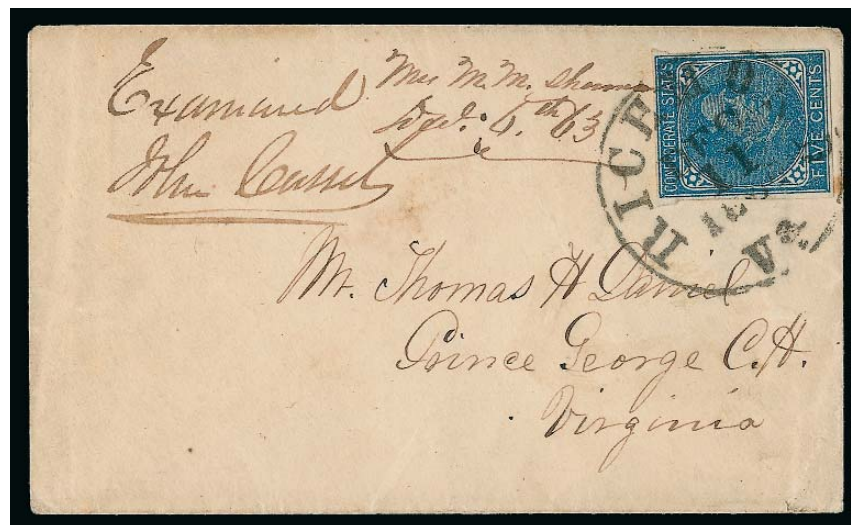 Examined
John Cassel
Mrs M. M.
6th 63
CONFEDERATE STATES
FIVE CENTS
RICH D
11
Va.
Mr. Thomas H Daniel
Prince George C.H.
Virginia